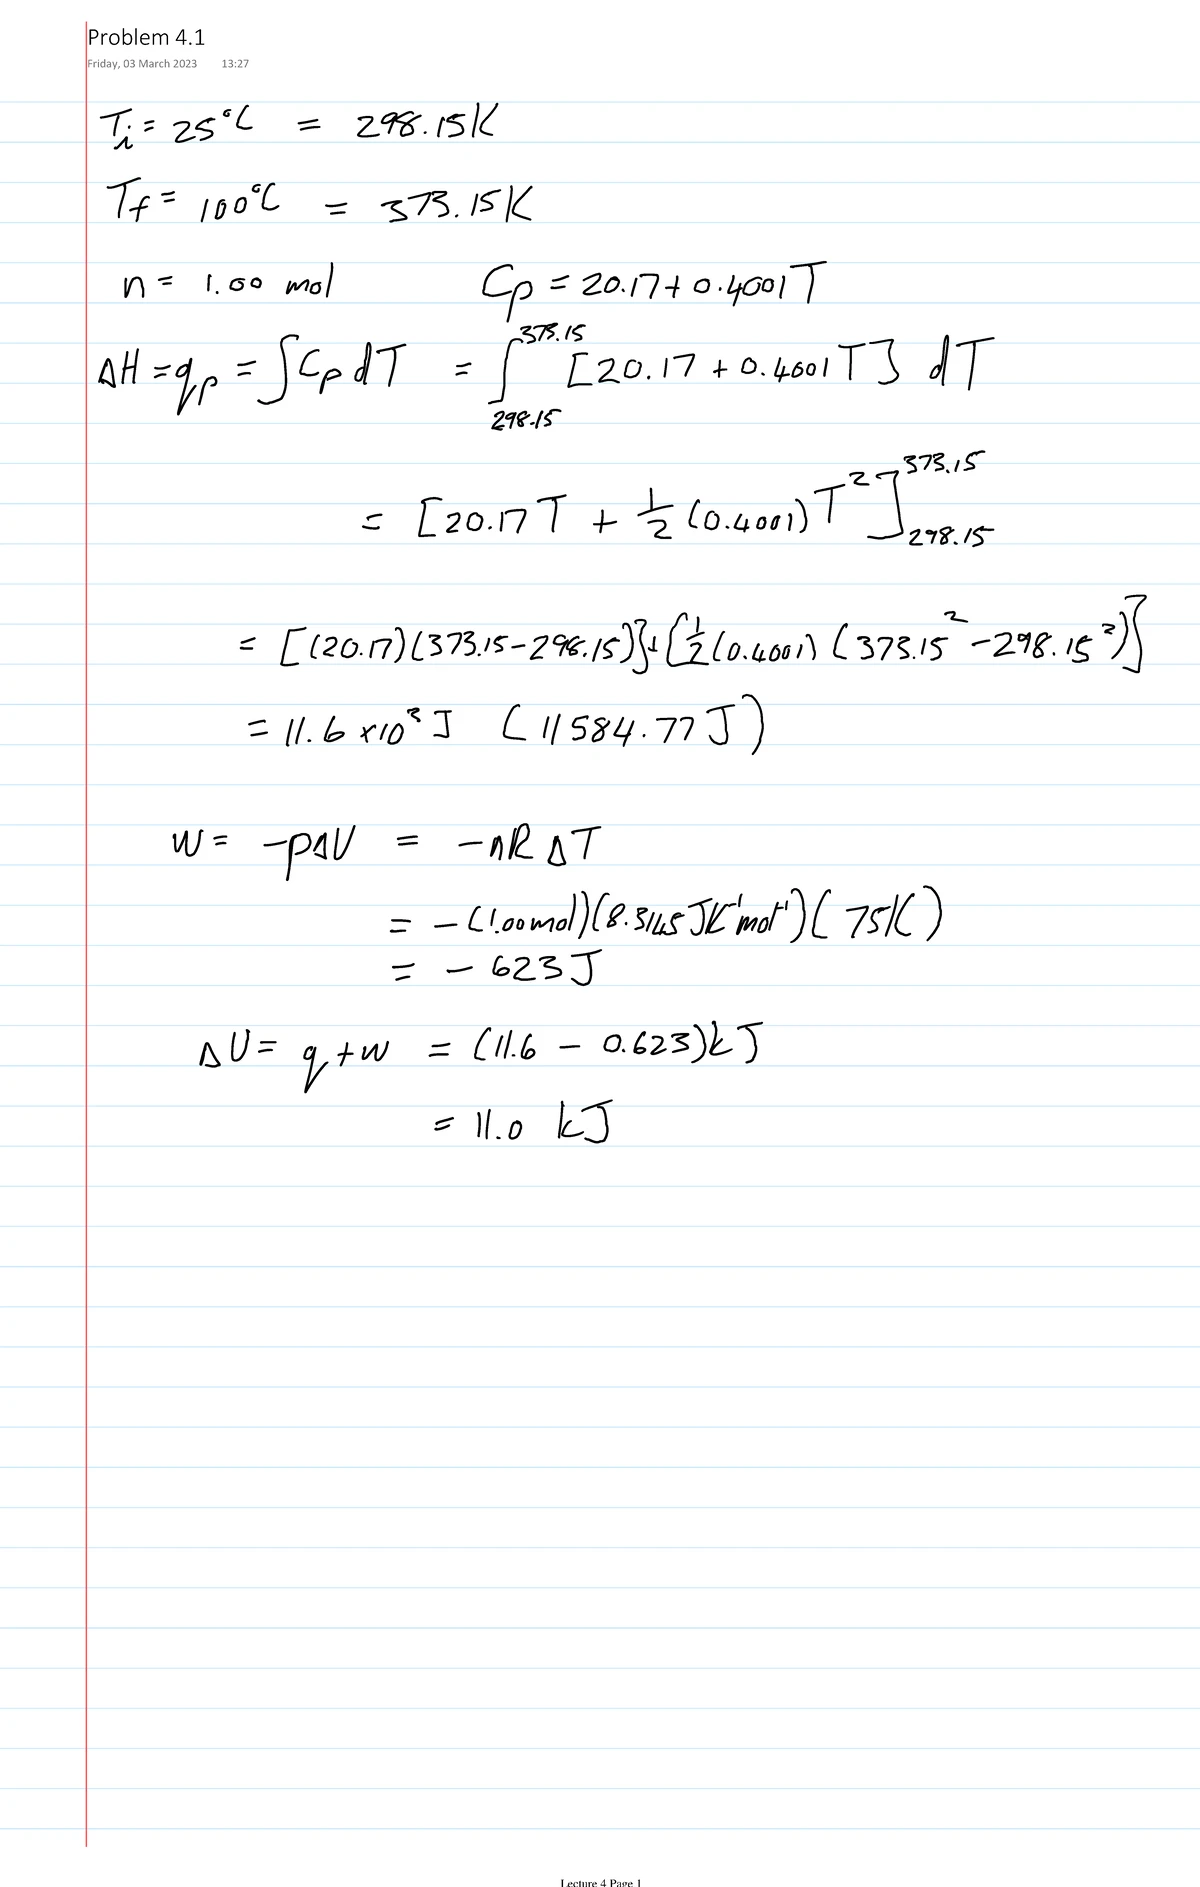 Problem 4.1
Friday, 03 March 2023 13:27
Ti = 25°C = 298.15K
Tf = 100°C = 373.15K
n = 1.00 mol Cp = 20.17 + 0.4001T
ΔH = qp = ∫Cp dT = ∫₂₉₈.₁₅³⁷³·¹⁵ [20.17 + 0.4001T] dT
= [20.17T + ½ (0.4001)T²]₂₉₈.₁₅³⁷³·¹⁵
= [(20.17)(373.15-298.15)]+[½(0.4001)(373.15²-298.15²)]
= 11.6 x10³ J (11584.77 J)
w = -pΔV = -nRΔT
= -(1.00mol)(8.3145 JK⁻¹mol⁻¹)(75K)
= -623J
ΔU = q+w = (11.6 - 0.623)kJ
= 11.0 kJ
Lecture 4 Page 1